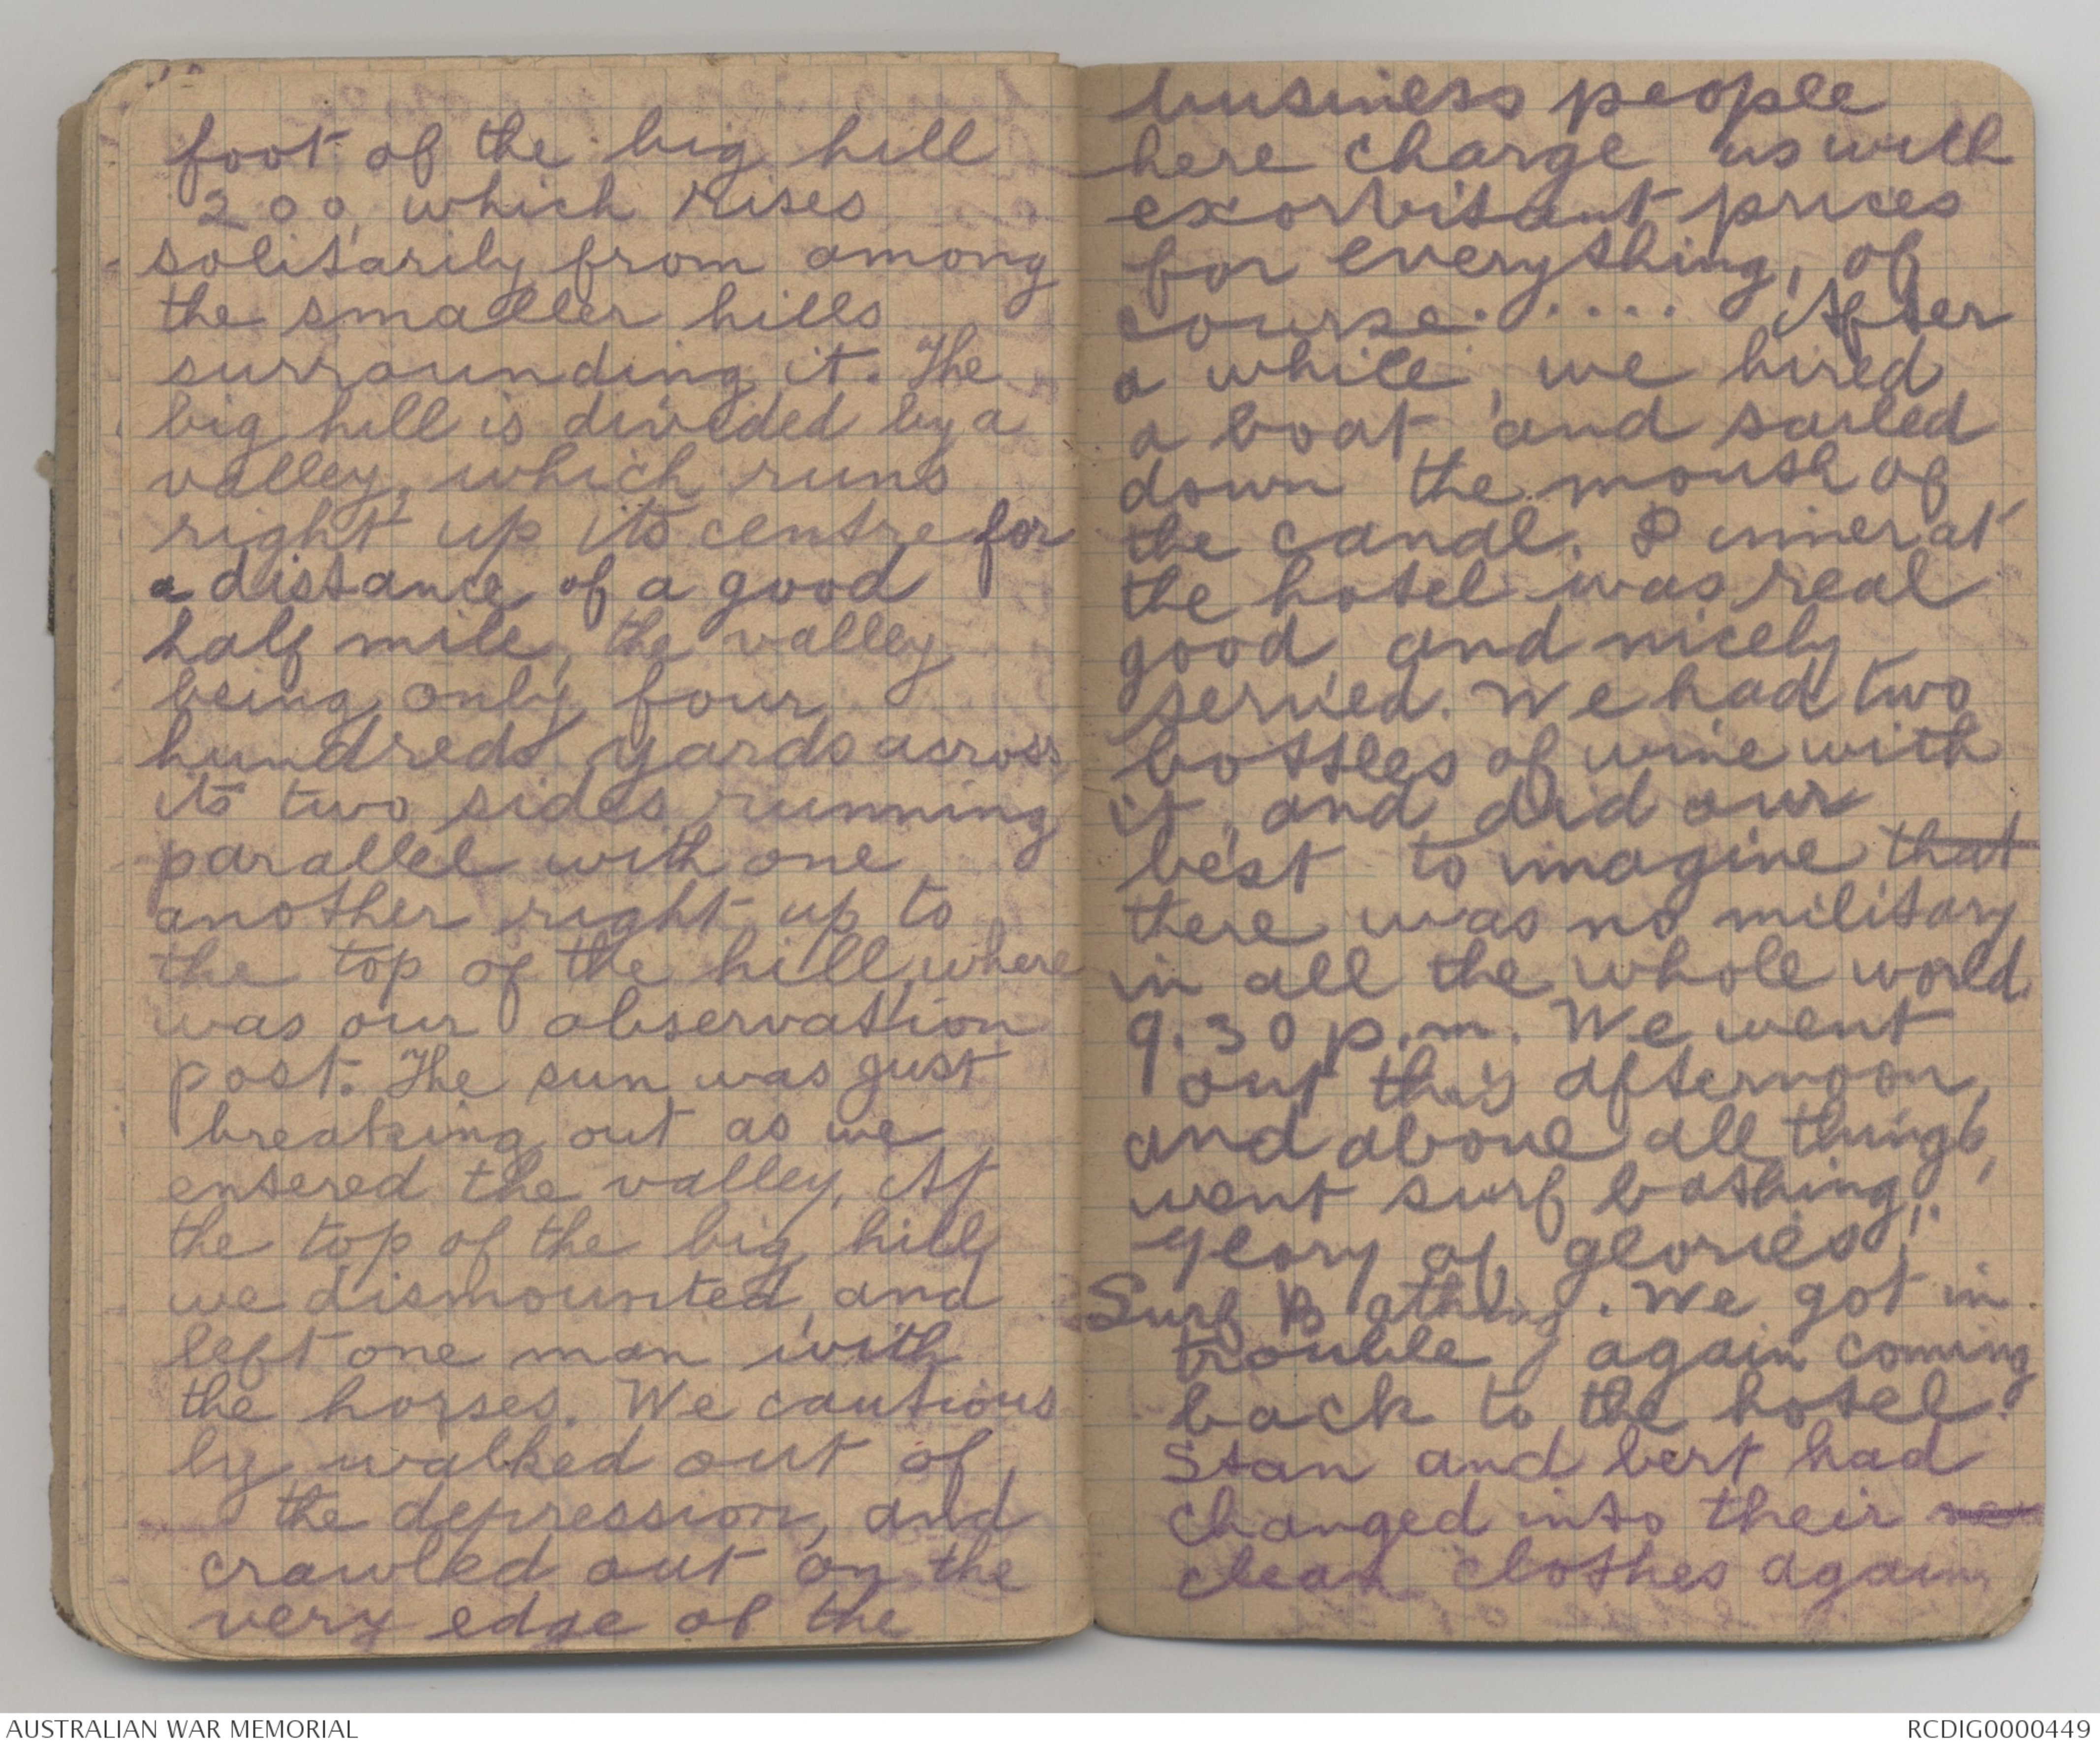 foot of the big hill
200, which rises
solitarily from among
the smaller hills
surrounding it. The
big hill is divided by a
valley, which runs
right up its centre for
a distance of a good
half mile, the valley
being only four
hundreds yards across,
its two sides running
parallel with one
another right up to
the top of the hill, where
was our observation
post. The sun was just
breaking out as we
entered the valley. At
the top of the big hill
we dismounted, and
left one man with
the horses. We cautious
ly walked out of
the depression, and
crawled out on the
very edge of the
business people
here charge us with
exorbitant prices
for everything, of
course. ..... After
a while, we hired
a boat and sailed
down the mouth of
the canal. Dinner at
the hotel was real
good and nicely
served. We had two
bottles of wine with
it, and did our
best to imagine that
there was no military
in all the whole world.
9.30 p.m. We went
out this afternoon,
and above all things,
went surf bathing,
glory of glories!
Surf Bathing. We got in
trouble again coming
back to the hotel.
Stan and bert had
changed into their
clean clothes again,
AUSTRALIAN WAR MEMORIAL
RCDIG0000449